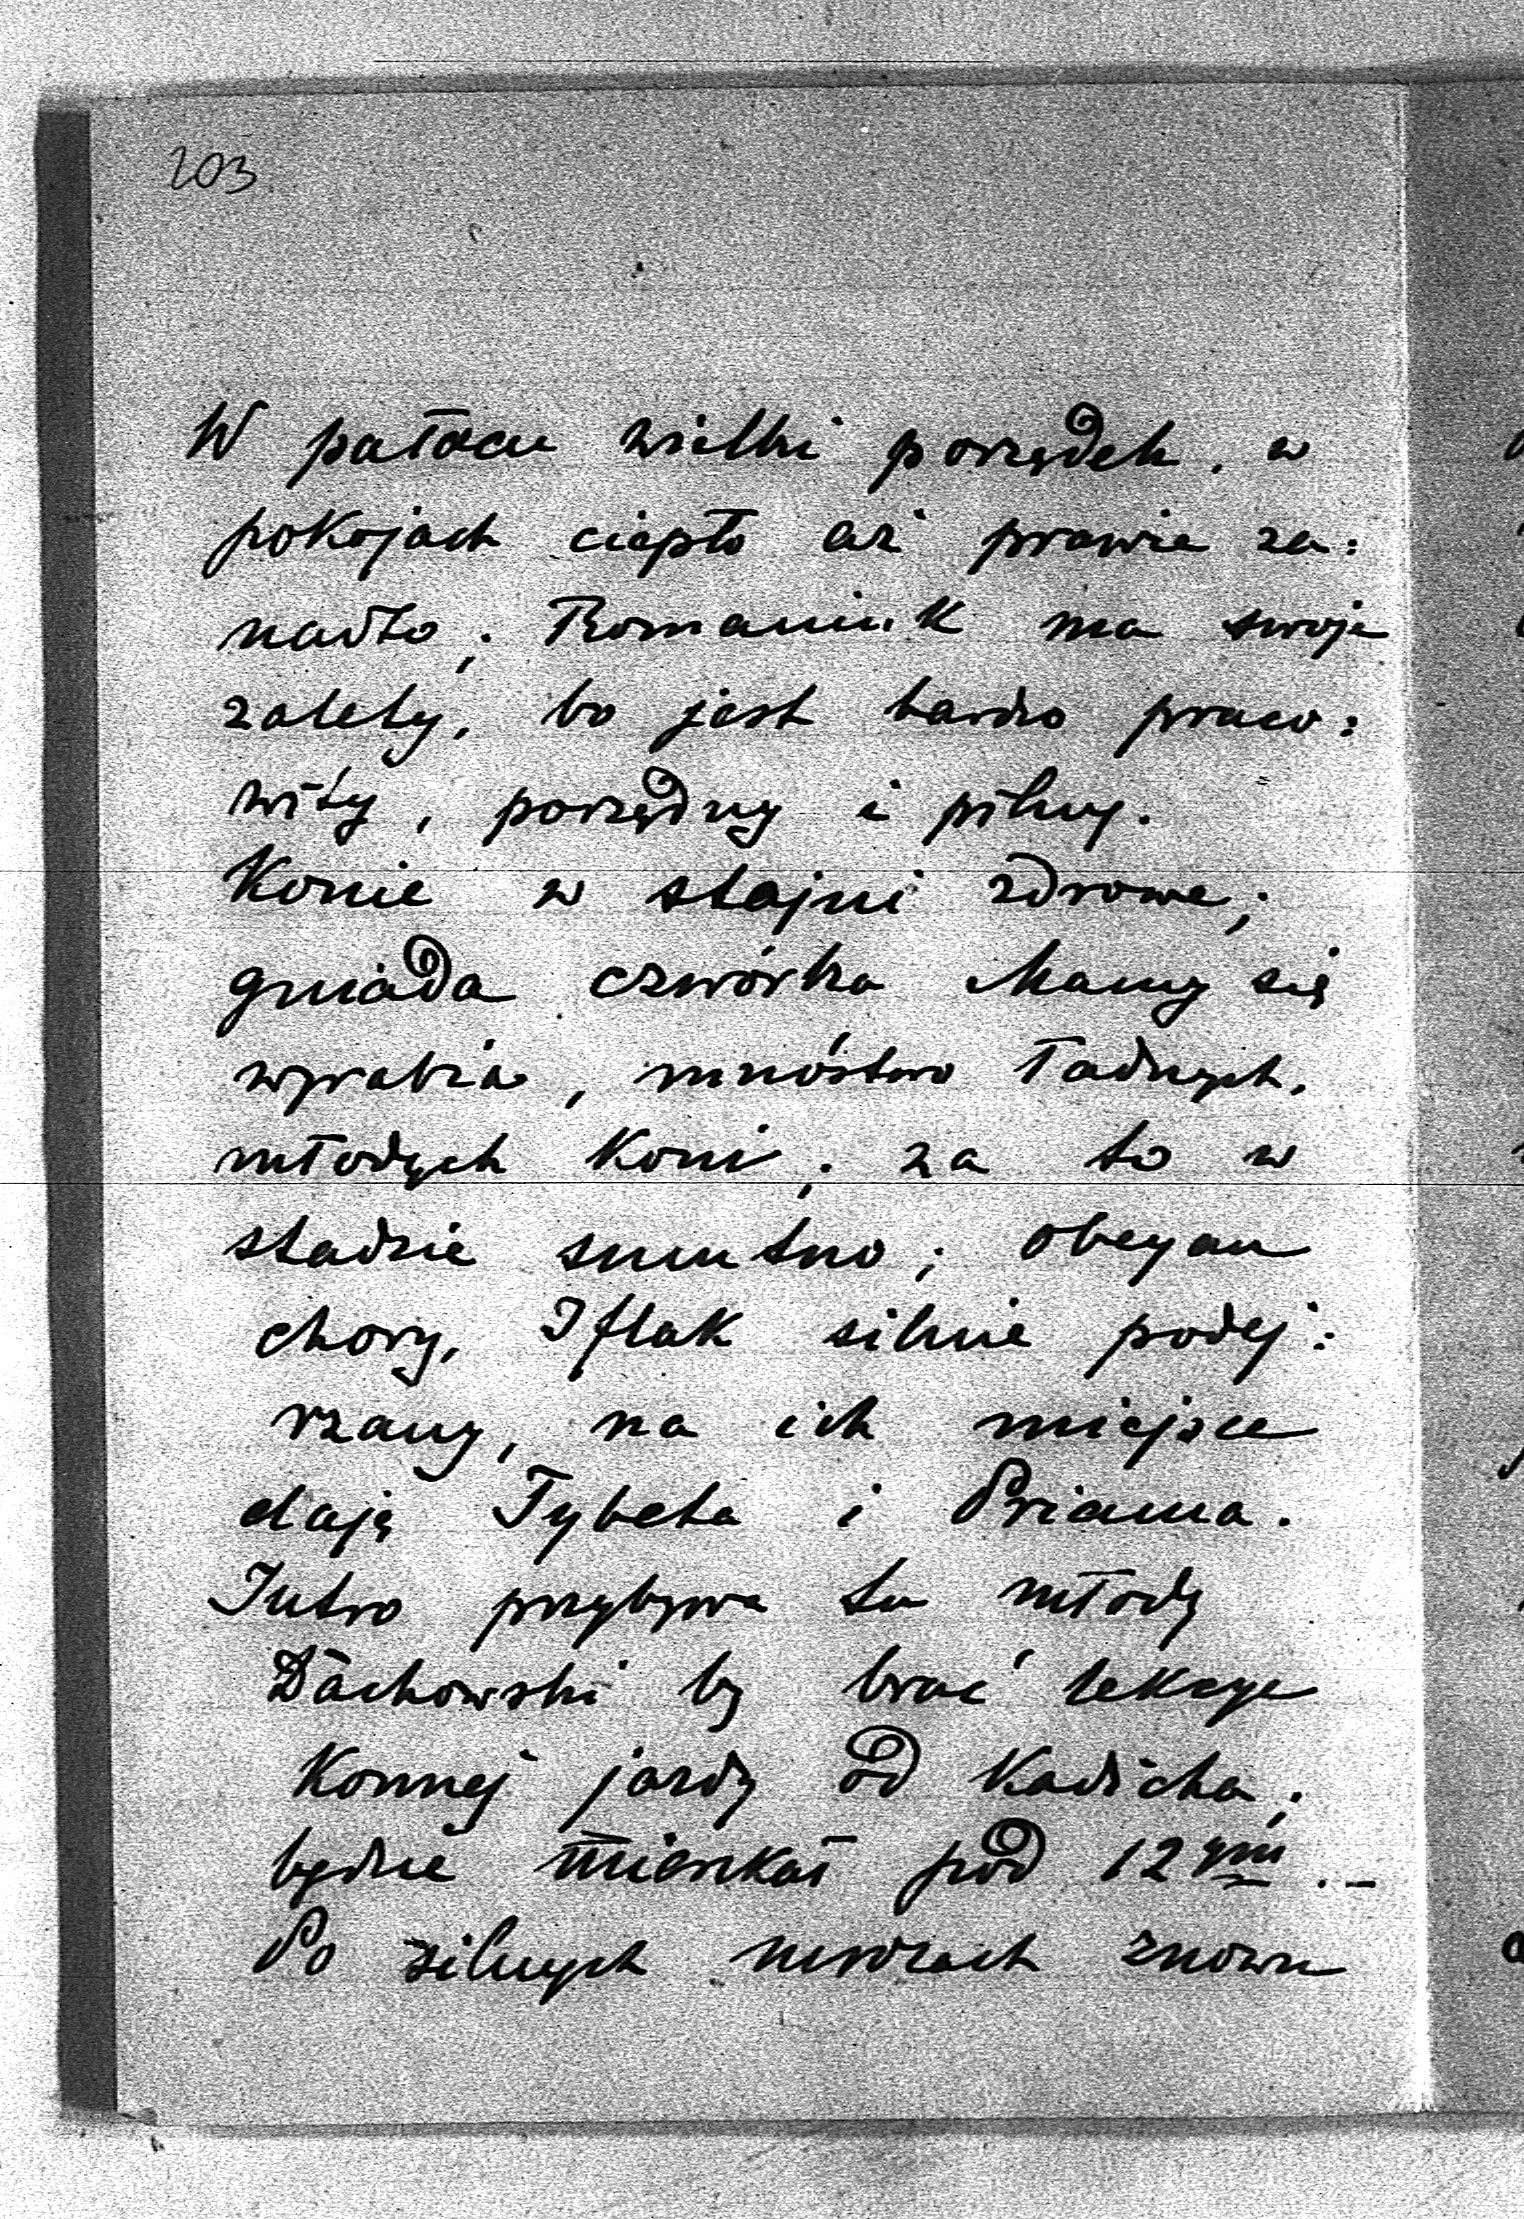 203
W pałacu wielki porządek, w
pokojach ciepło aż prawie za:
nadto; Romaniuk ma swoje
zalety, bo jest bardzo praco:
wity, porządny i pilny.
Konie w stajni zdrowe;
gniada czwórka Mamy się
wyrabia, mnóstwo ładnych,
młodych koni; za to w
stadzie smutno; Obeyan
chory, Iflak silnie podej:
rzany, na ich miejsce
dają Tybeta i Priama.
Jutro przybywa tu młody
Dachowski by brać lekcye
konnej jazdy od Kadicha;
będzie mieszkał pod 12ym. –
Po silnych mrozach znowu